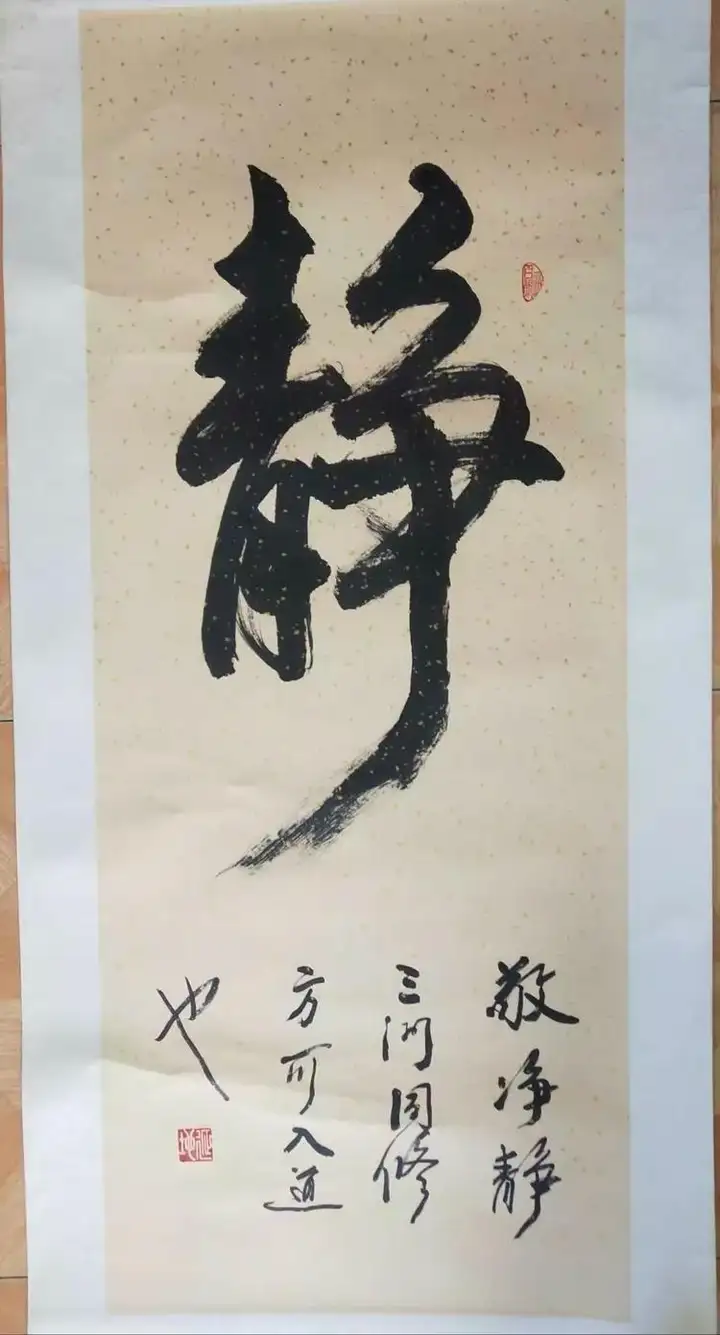 静
敬净静
三门同修
方可入道
也